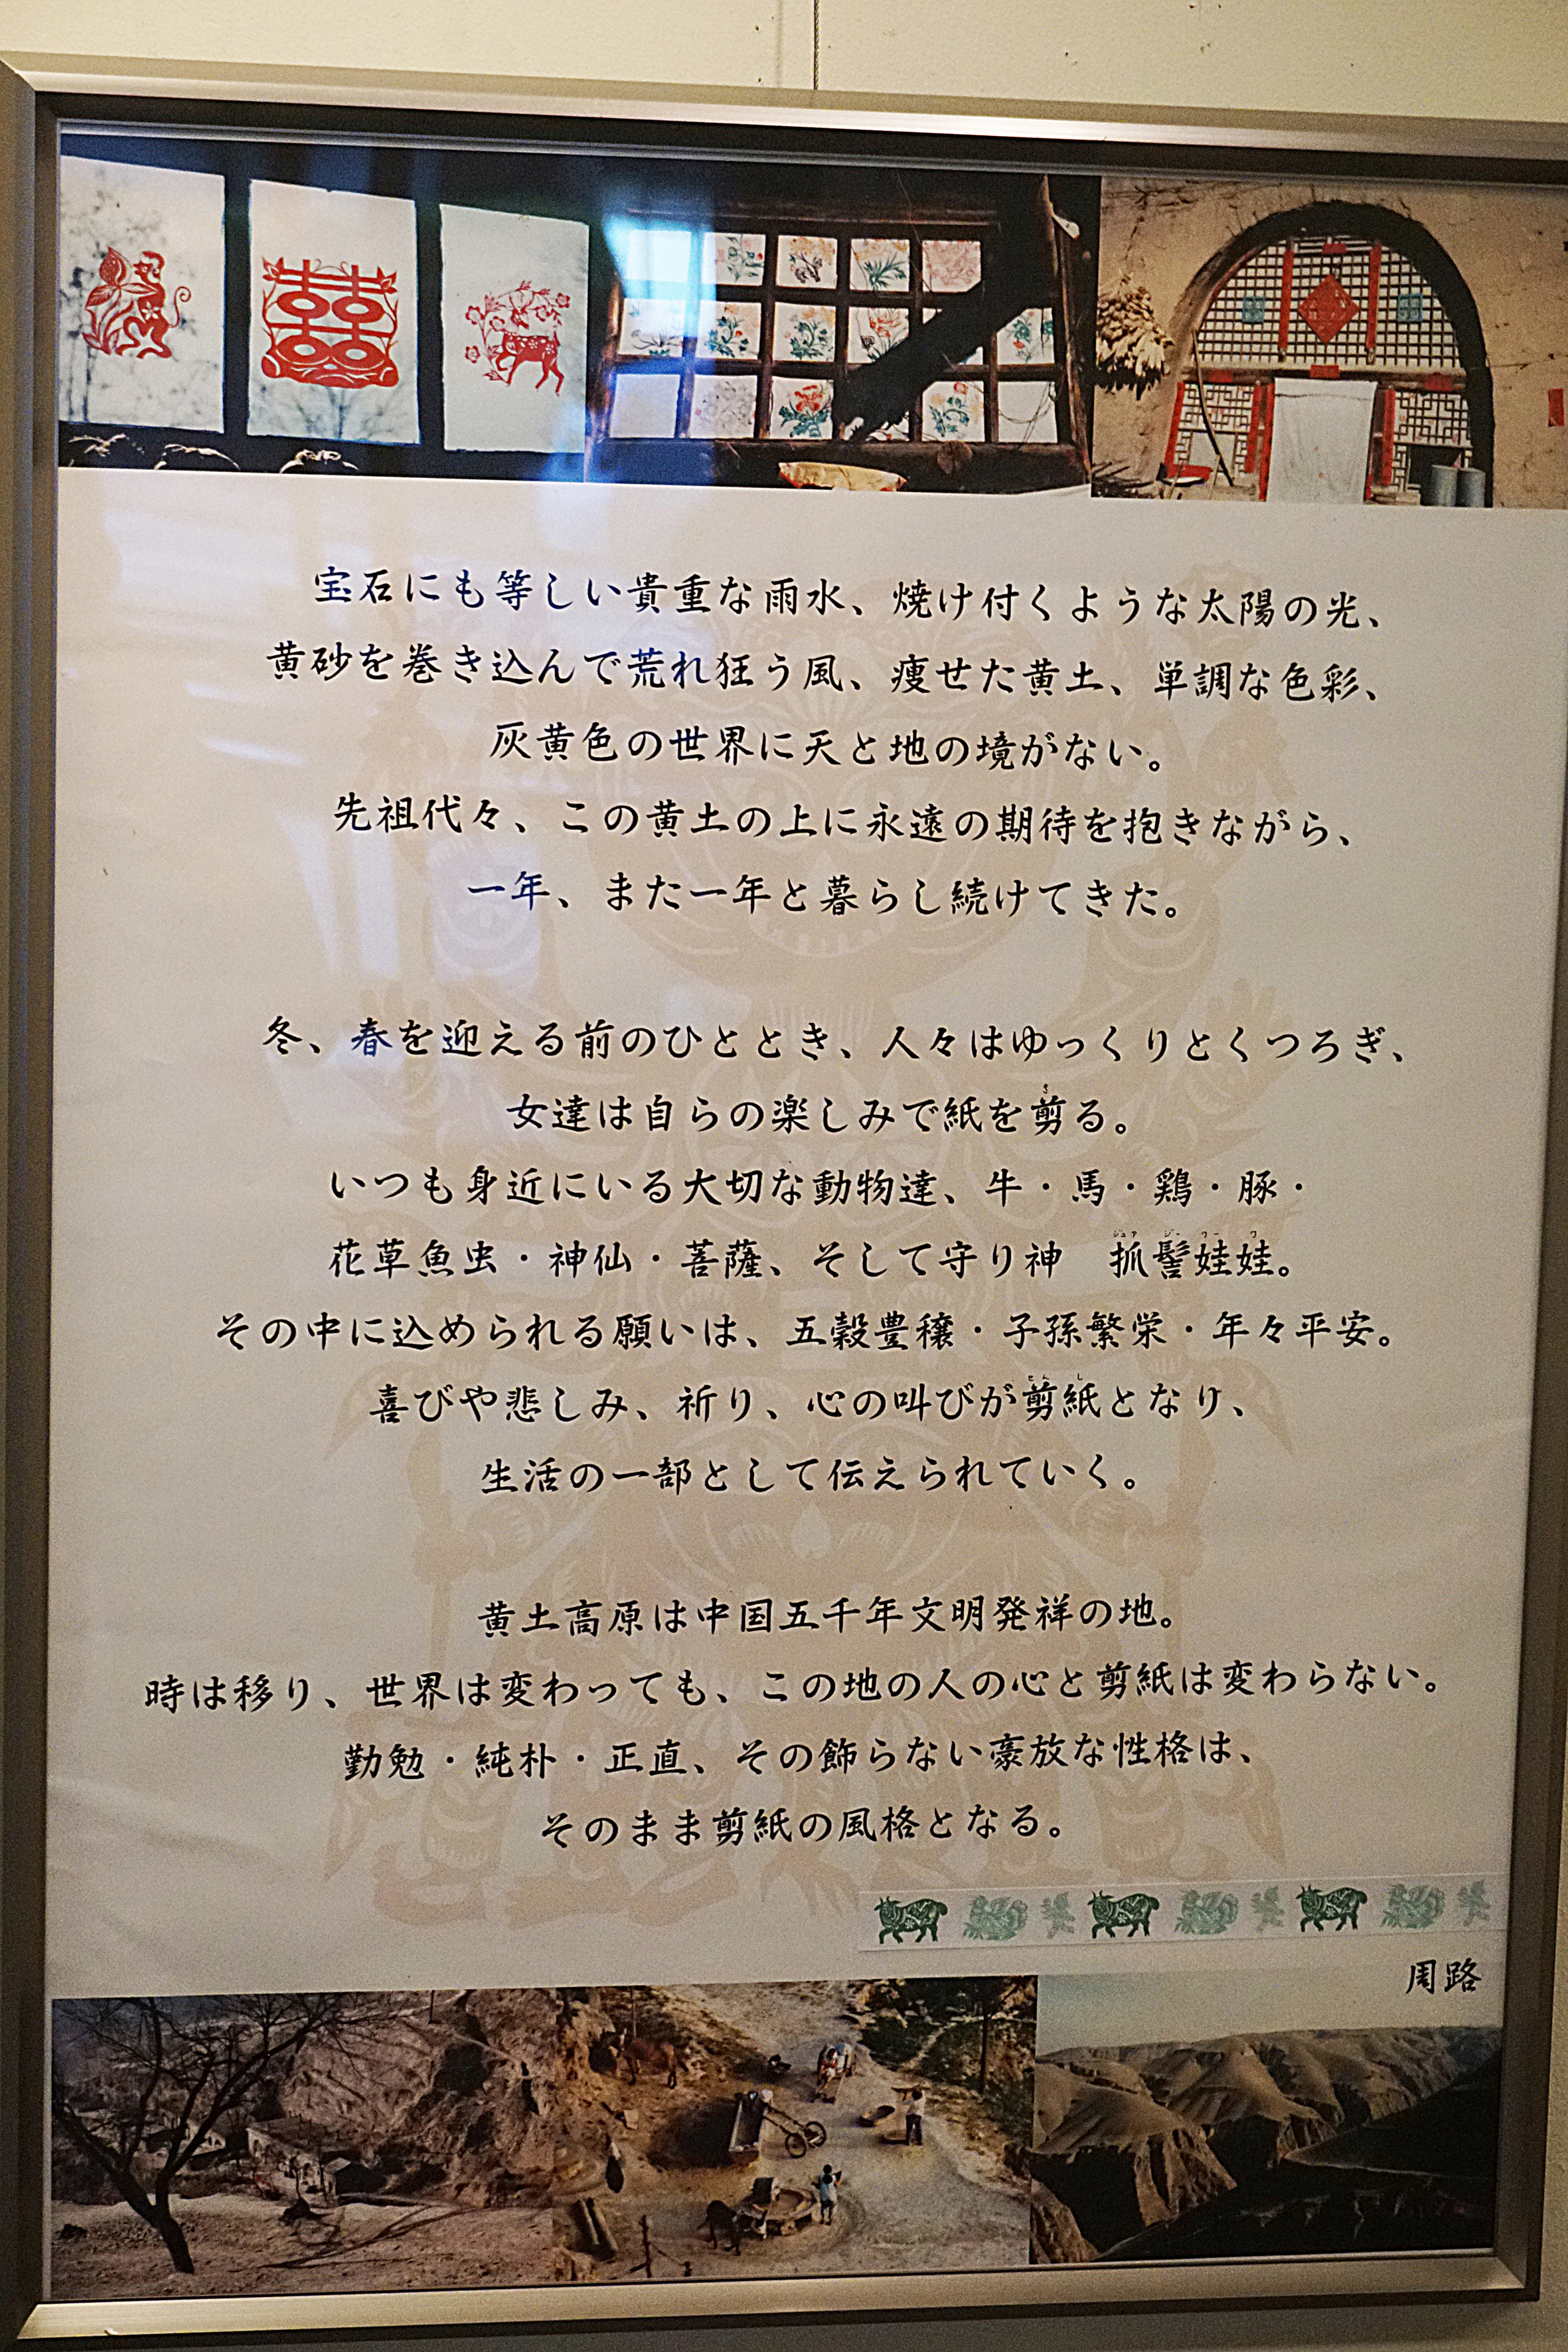 宝石にも等しい貴重な雨水、焼け付くような太陽の光、
黄砂を巻き込んで荒れ狂う風、痩せた黄土、単調な色彩、
灰黄色の世界に天と地の境がない。
先祖代々、この黄土の上に永遠の期待を抱きながら、
一年、また一年と暮らし続けてきた。
冬、春を迎える前のひととき、人々はゆっくりとくつろぎ、
女達は自らの楽しみで紙を剪る。
いつも身近にいる大切な動物達、牛・馬・鶏・豚・
花草魚虫・神仙・菩薩、そして守り神　抓髻娃娃。
その中に込められる願いは、五穀豊穣・子孫繁栄・年々平安。
喜びや悲しみ、祈り、心の叫びが剪紙となり、
生活の一部として伝えられていく。
黄土高原は中国五千年文明発祥の地。
時は移り、世界は変わっても、この地の人の心と剪紙は変わらない。
勤勉・純朴・正直、その飾らない豪放な性格は、
そのまま剪紙の風格となる。
周路